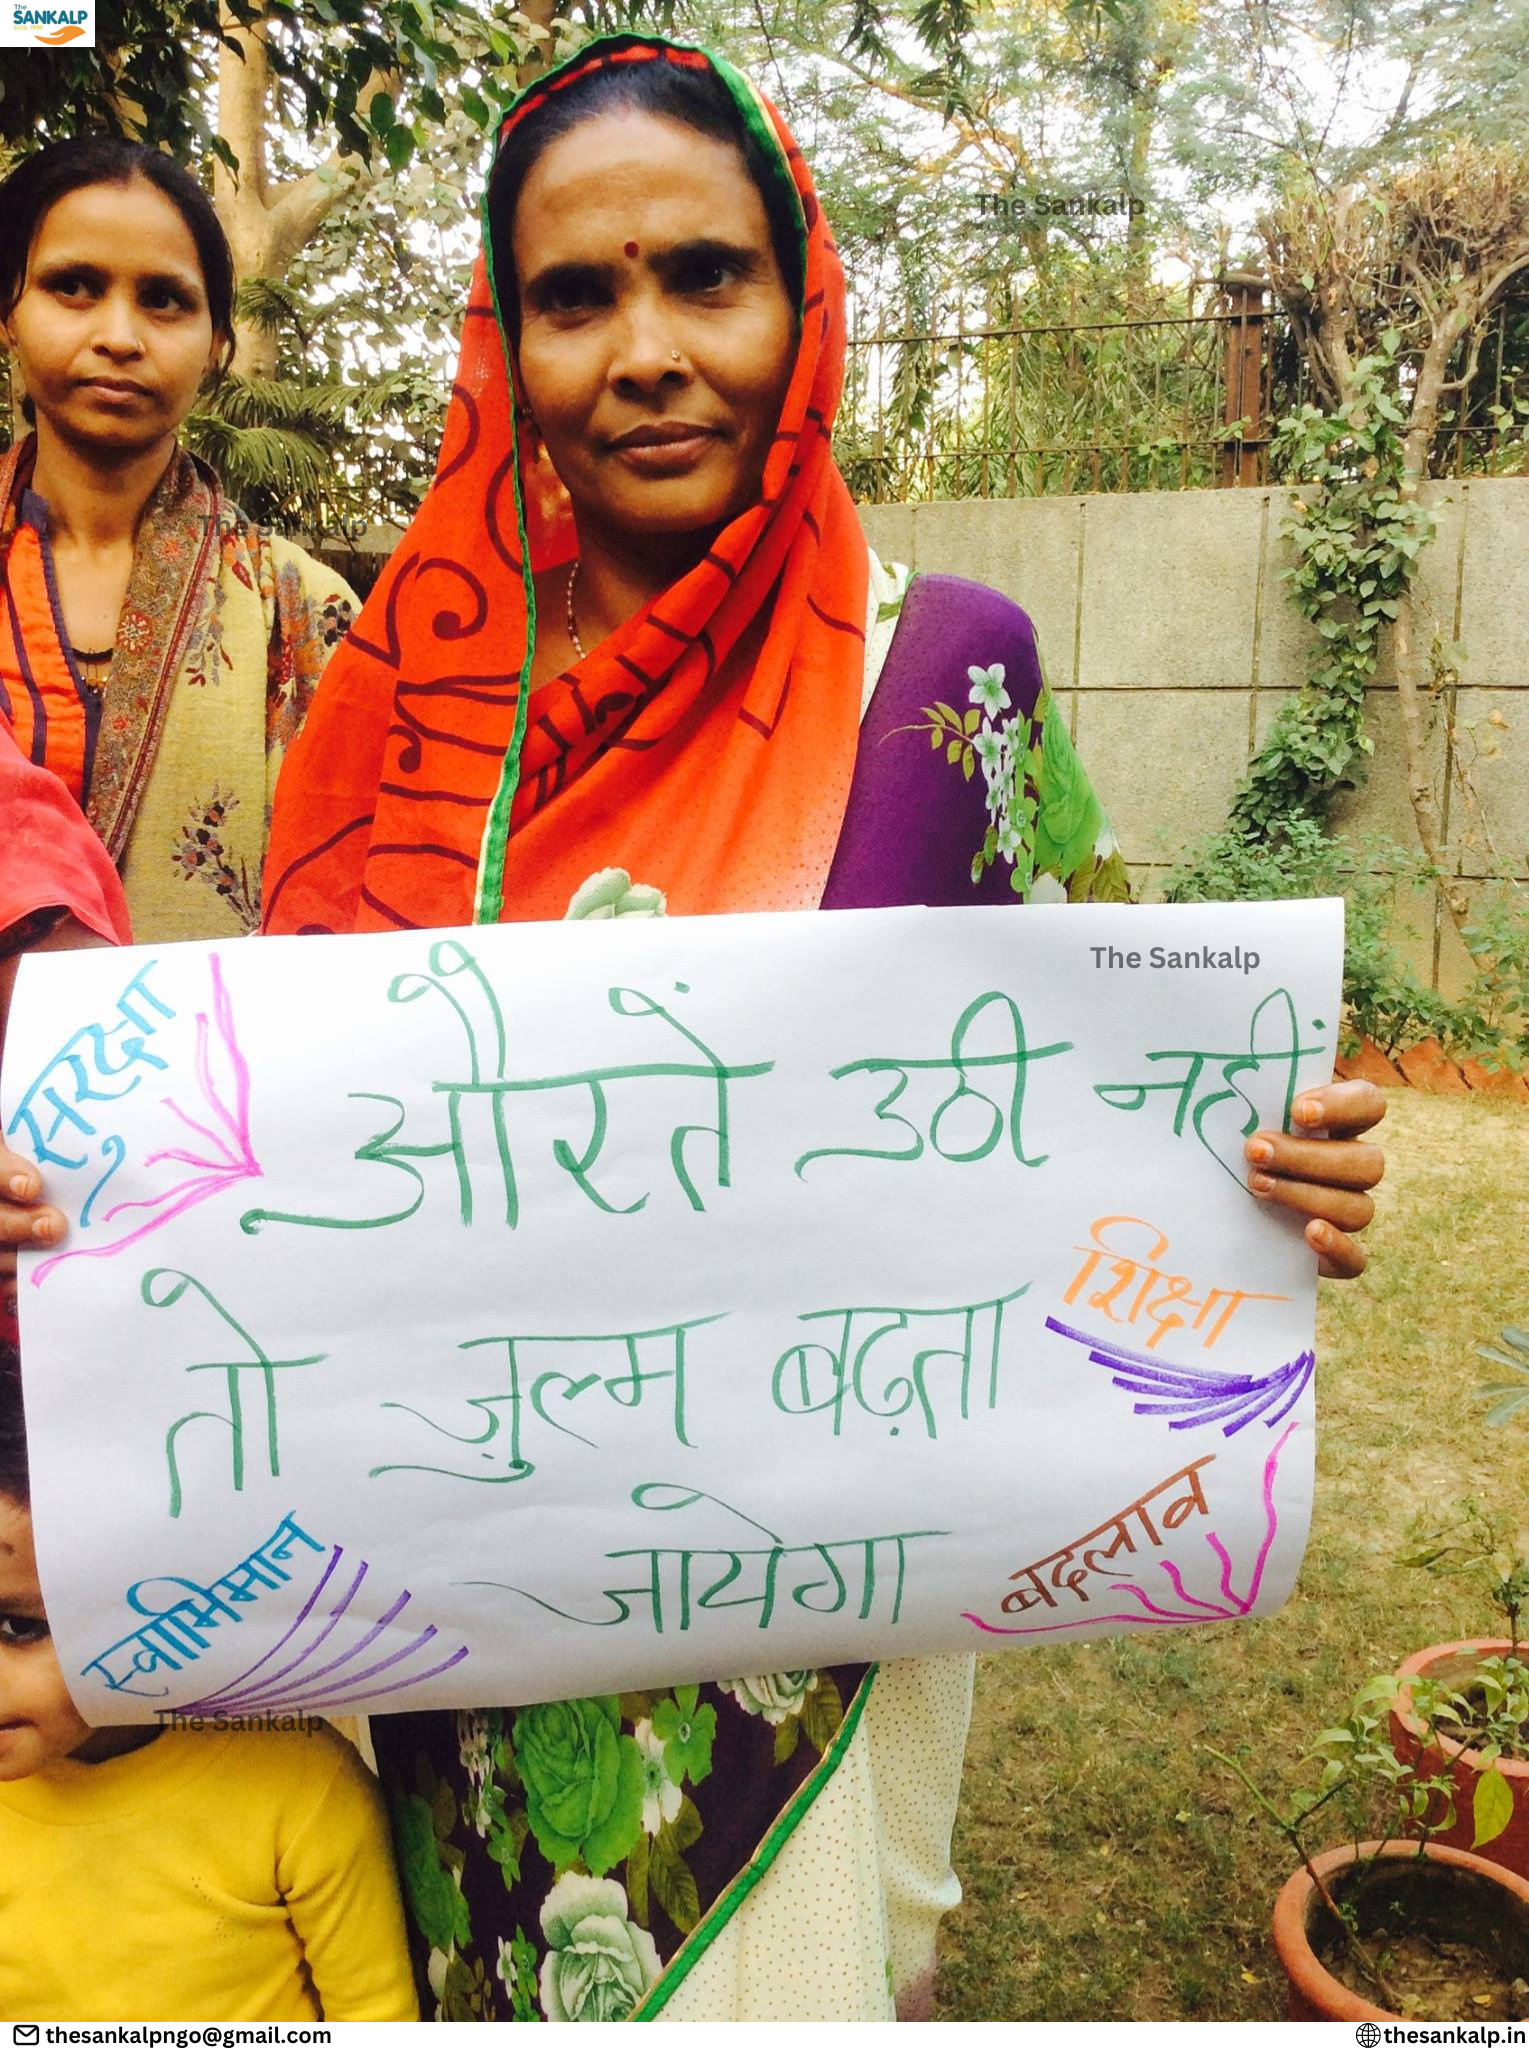 The
SANKALP
The Sankalp
The Sankalp
The Sankalp
सुरक्षा
औरतें उठी नहीं
तो ज़ुल्म बढ़ता
जायेगा
शिक्षा
स्वाभिमान
बदलाव
The Sankalp
thesankalpngo@gmail.com
thesankalp.in